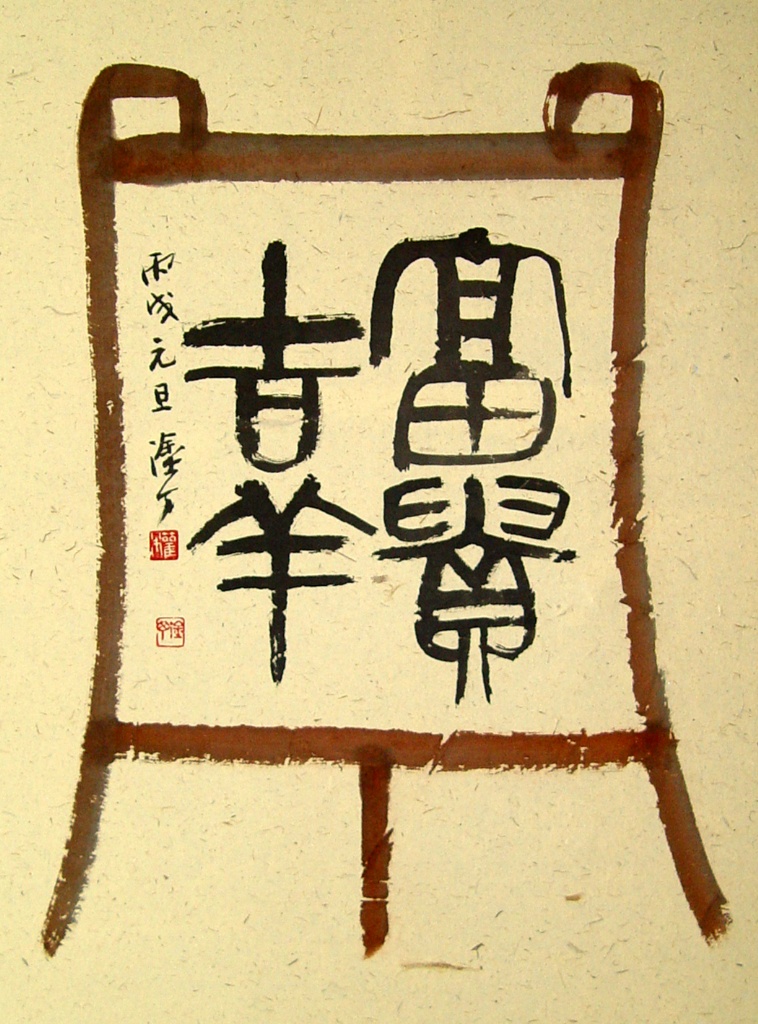 富貴
吉羊
丙戌元旦